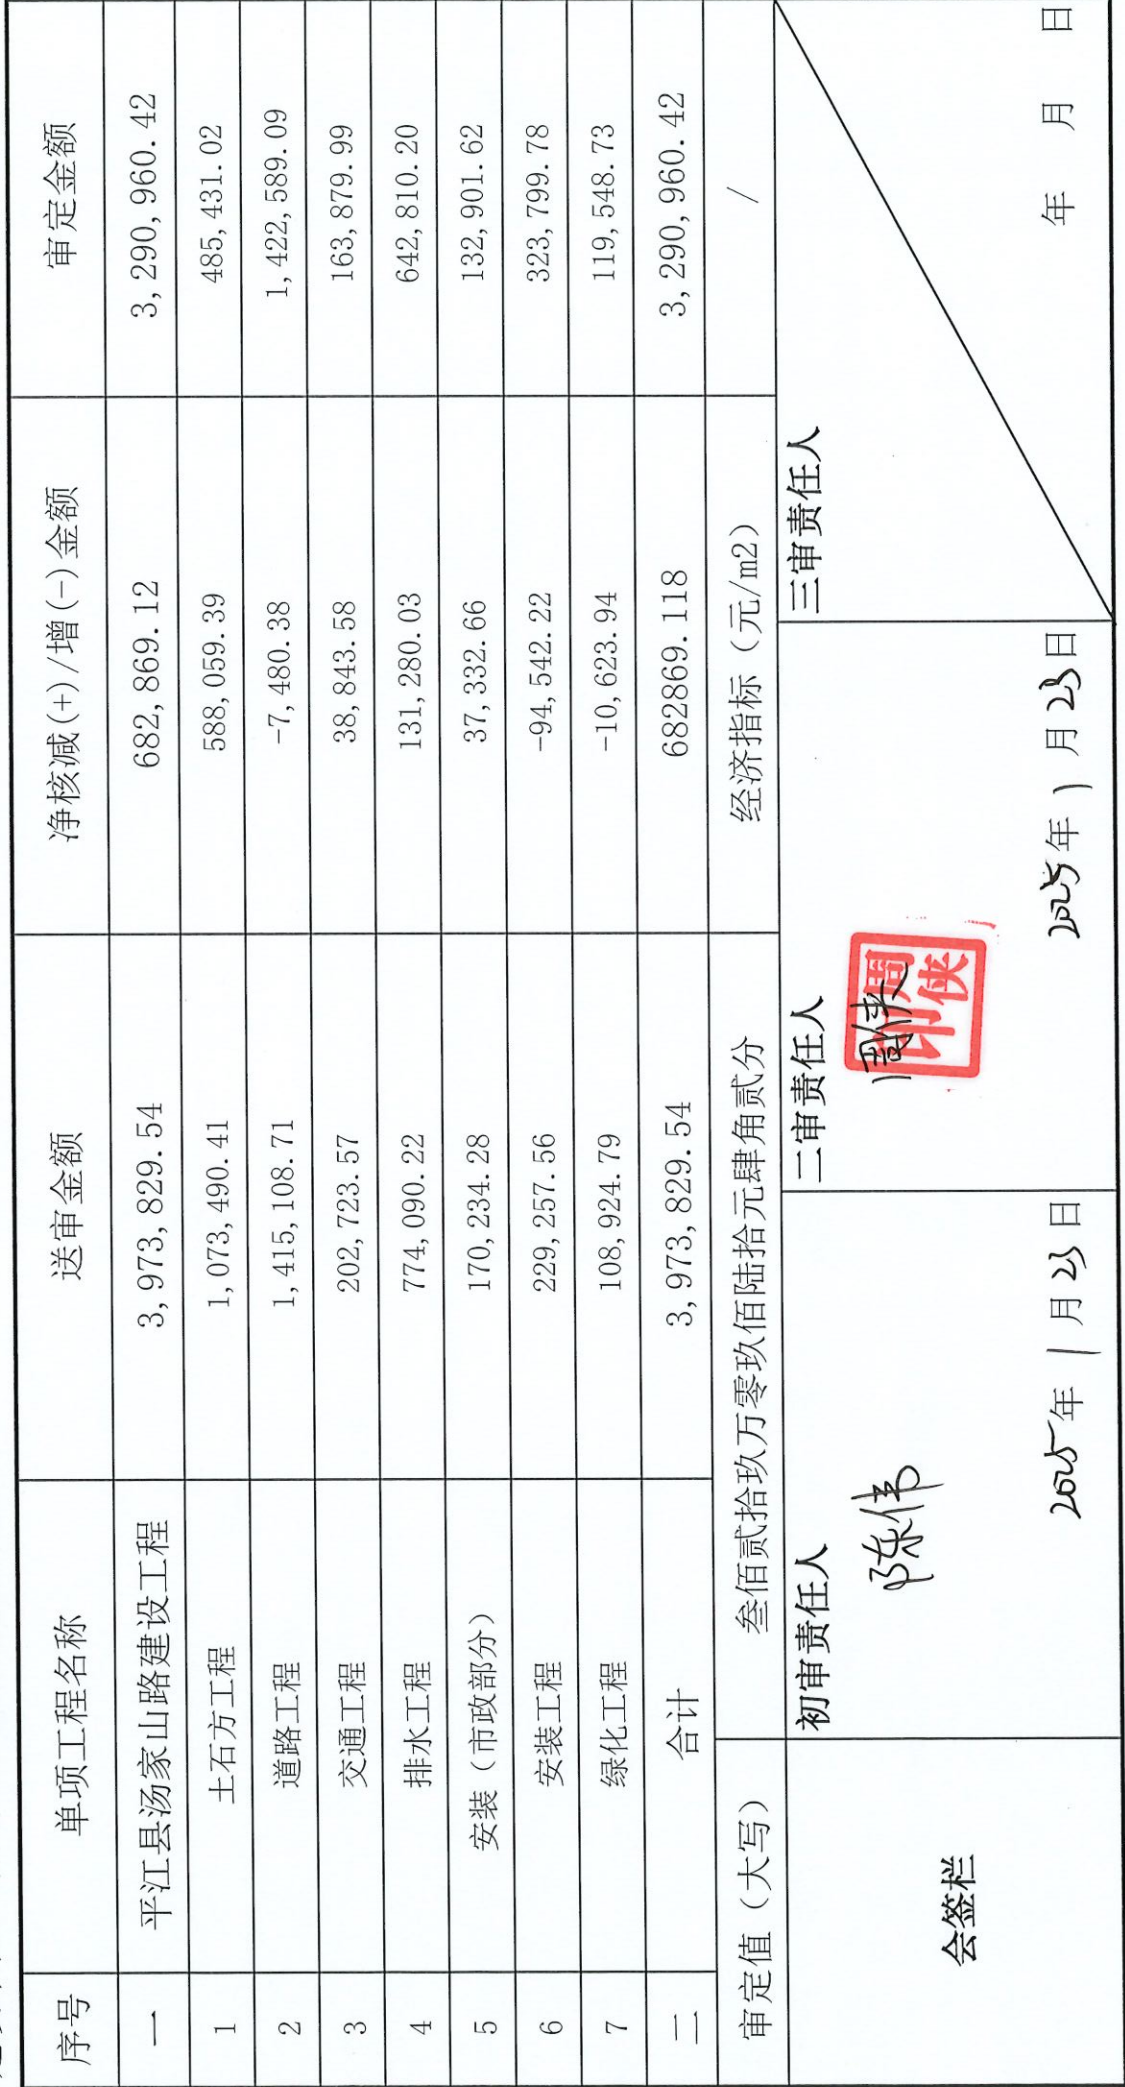 序号 单项工程名称 送审金额 净核减(+)/增(-)金额 审定金额
一 平江县汤家山路建设工程 3,973,829.54 682,869.12 3,290,960.42
1 土石方工程 1,073,490.41 588,059.39 485,431.02
2 道路工程 1,415,108.71 -7,480.38 1,422,589.09
3 交通工程 202,723.57 38,843.58 163,879.99
4 排水工程 774,090.22 131,280.03 642,810.20
5 安装（市政部分） 170,234.28 37,332.66 132,901.62
6 安装工程 229,257.56 -94,542.22 323,799.78
7 绿化工程 108,924.79 -10,623.94 119,548.73
二 合计 3,973,829.54 682869.118 3,290,960.42
审定值（大写） 叁佰贰拾玖万零玖佰陆拾元肆角贰分 经济指标（元/m2） /
会签栏 初审责任人 二审责任人 三审责任人
陈伟 周侠
周侠印
2025年1月23日 2025年1月23日 年 月 日